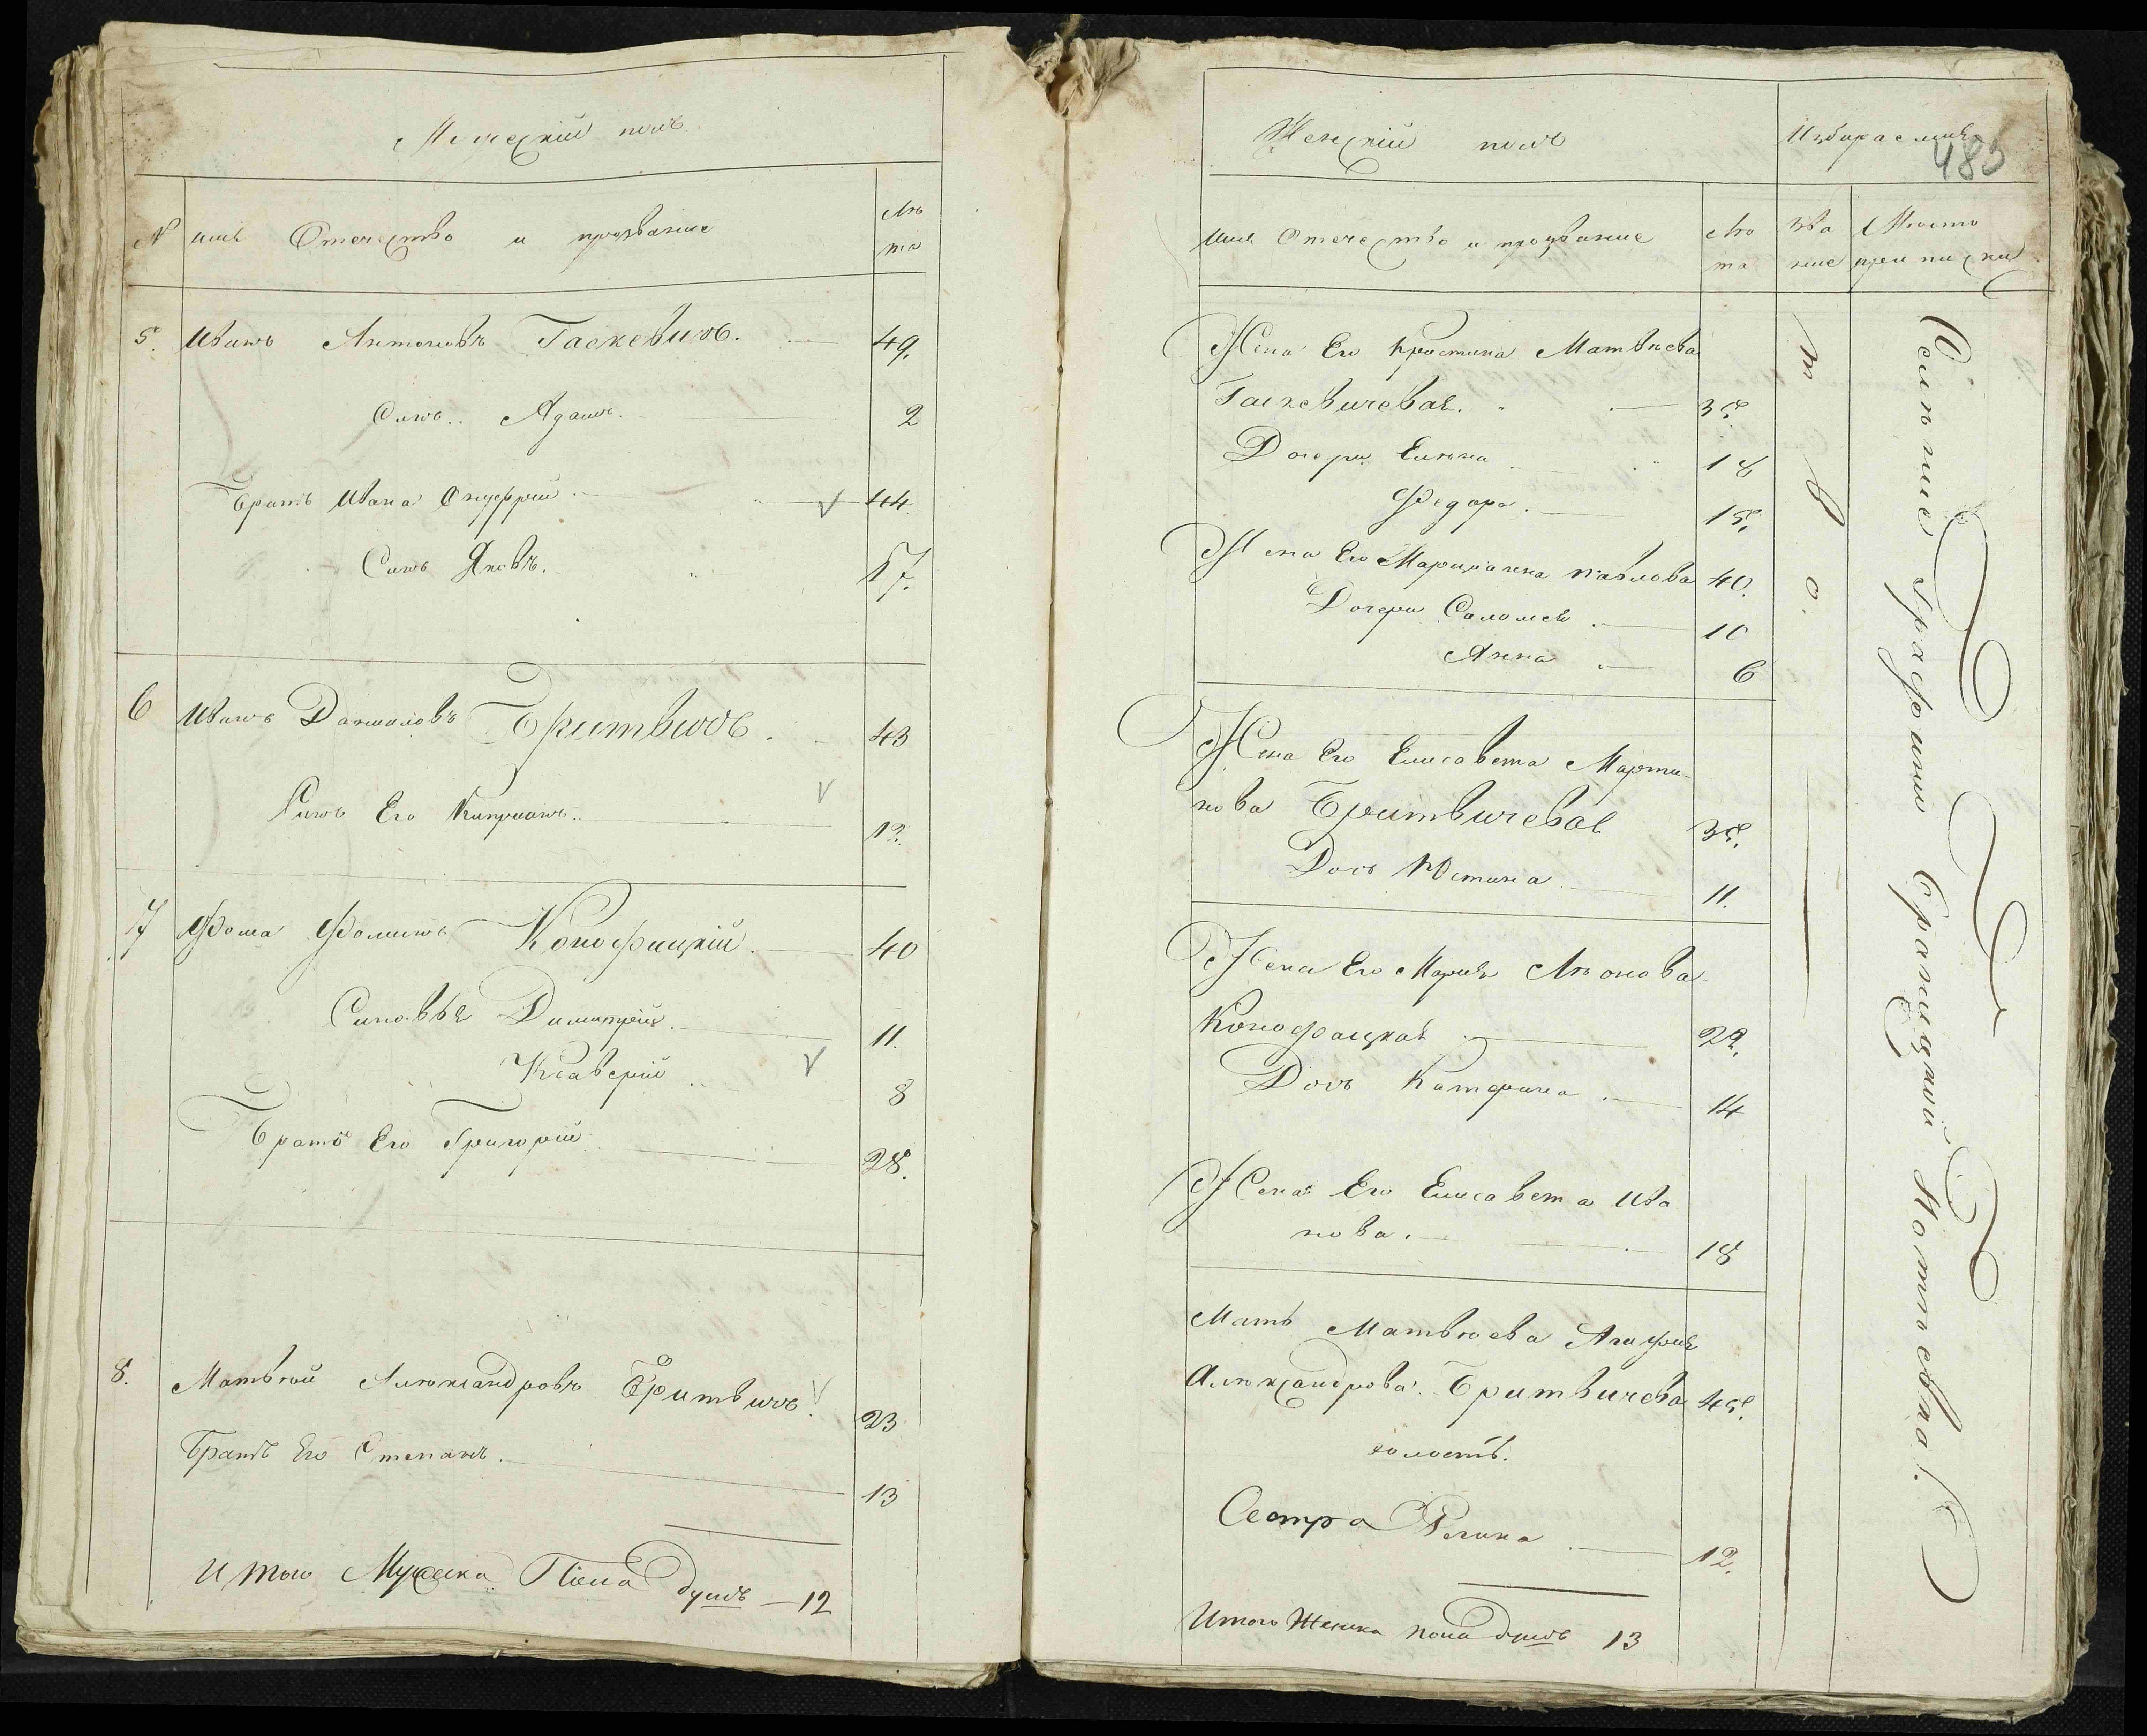 Мужескій полъ
N имя Отечество и прозваніе Лѣ
та
5. Иванъ Антоновъ Гаскевичъ. 49.
Сынъ Адамъ. 2
Братъ Ивана Онуфрій 44.
Сынъ Яковъ. 17.
6 Иванъ Даниловъ Бритвичъ. 43
Сынъ Его Кипріанъ. 12.
7 Фома Фоминъ Конофицкій 40
Сыновья Димитрій. 11.
Ксаверій 8
Братъ Его Григорій 28.
8. Матвѣй Александровъ Бритвичъ. 23
Братъ Его Степанъ. 13
Итого Мужеска Пола душъ — 12
Женскій полъ
Избираемыя
483
Имя Отечество и прозваніе Лѣ
та
Зва
ніе
Мѣсто
приписки
Жена Его Кристина Матвѣева
Гаскевичевая. 35.
Дочери Елена 18
Федора. 15.
Жена Его Маріанна Павлова 40.
Дочери Саломея 10
Анна 6
Жена Его Елисавета Марти-
нова Бритвичевая 35.
Дочь Юстина 11.
Жена Его Марія Леонова
Конофацкая 22.
Дочь Катерина 14
Жена Его Елисавета Ива
нова. 18
Мать Матвѣева Агафія
Александрова. Бритвичева 45.
холостъ.
Сестра 12.
Итого Женска пола душъ 13
тво.
Селеніе Графини